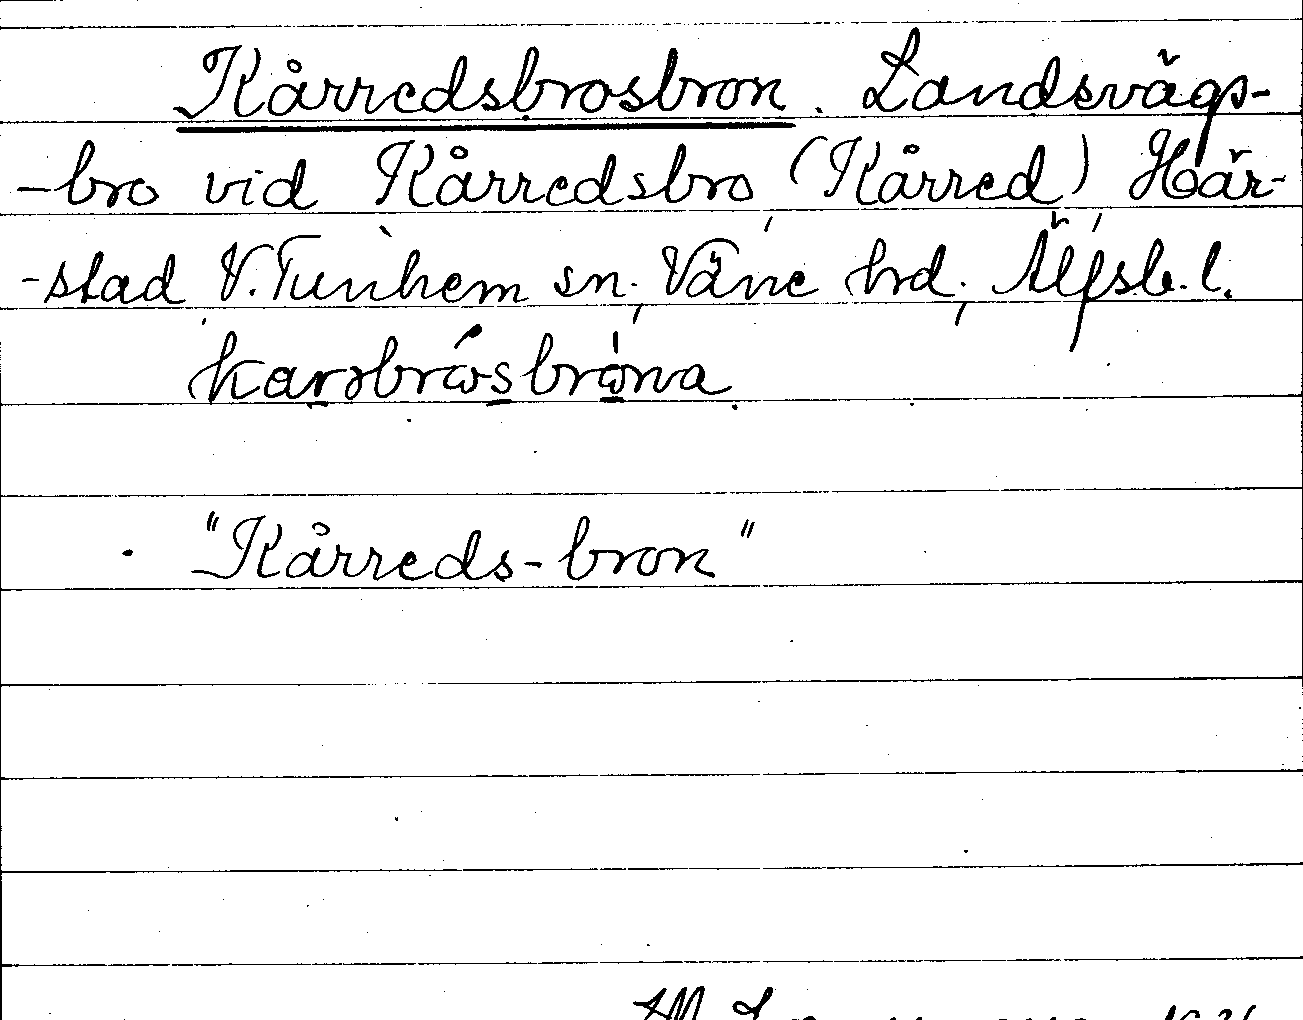 Kårredsbrosbron. Landsvägs-
-bro vid Kårredsbro (Kårred) Här-
-stad V. Tunhem sn; Väne hd; Älfsb. l.
karsbrösbröna
"Kårreds-bron"